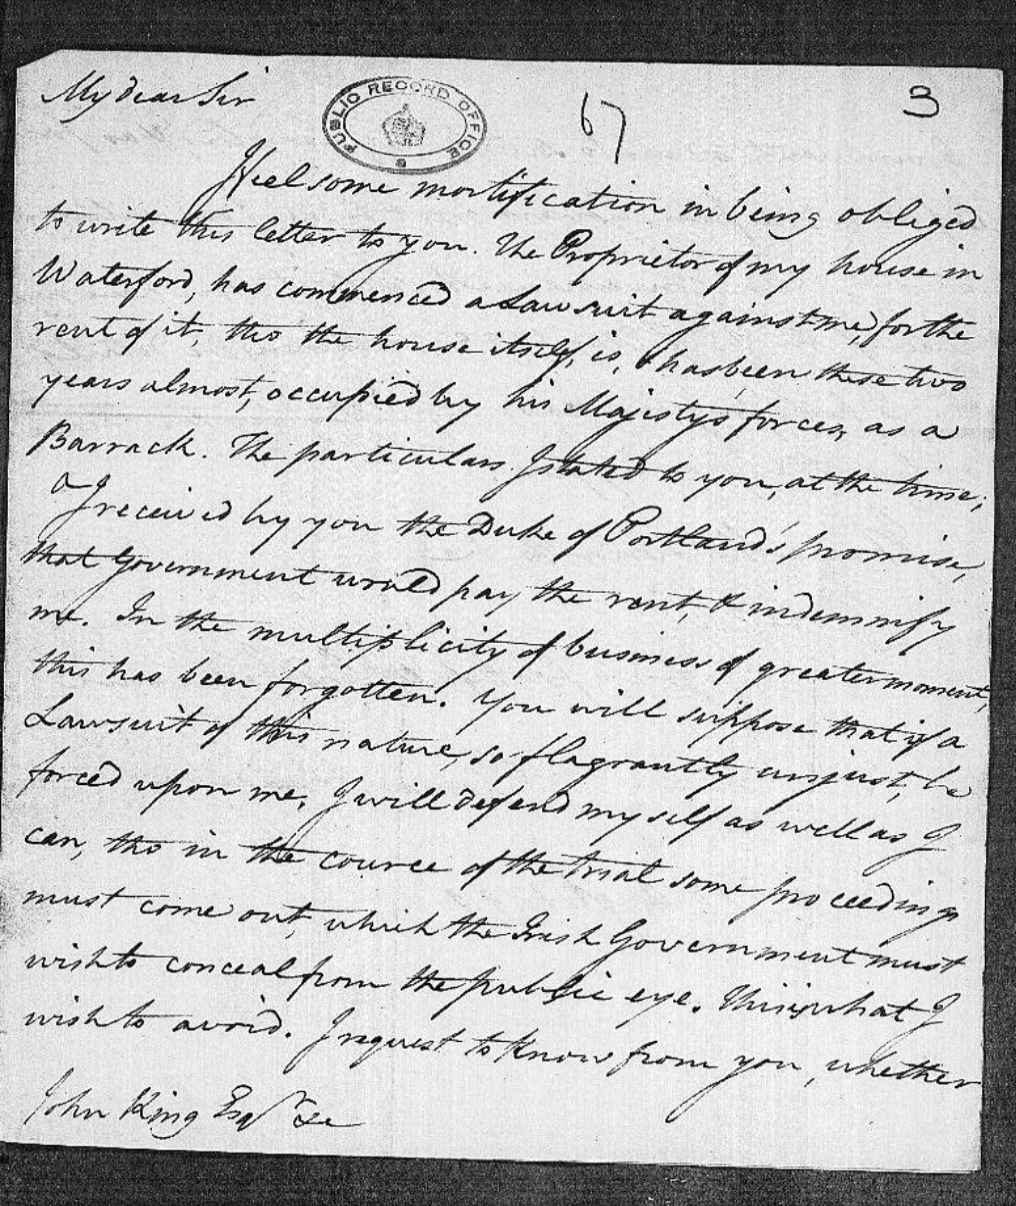 My dear Sir
PUBLIC RECORD OFFICE
67
3
I feel some mortification in being obliged
to write this letter to you. The Proprietor of my house in
Waterford, has commenced a Lawsuit against me, for the
rent of it, tho the house itself, is, & has been these two
years almost, occupied by his Majesty's forces, as a
Barrack. The particulars I stated to you, at the time;
& I received by you the Duke of Portland's promise,
that Government would pay the rent, & indemnify
me. In the multiplicity of business of greater moment,
this has been forgotten. You will suppose that if a
Lawsuit of this nature, so flagrantly unjust, be
forced upon me, I will defend myself as well as I
can, tho in the cource of the trial some proceedings
must come out, which the Irish Government must
wish to conceal from the public eye. This is what I
wish to avoid. I request to know from you, whether
John King Esqr &c